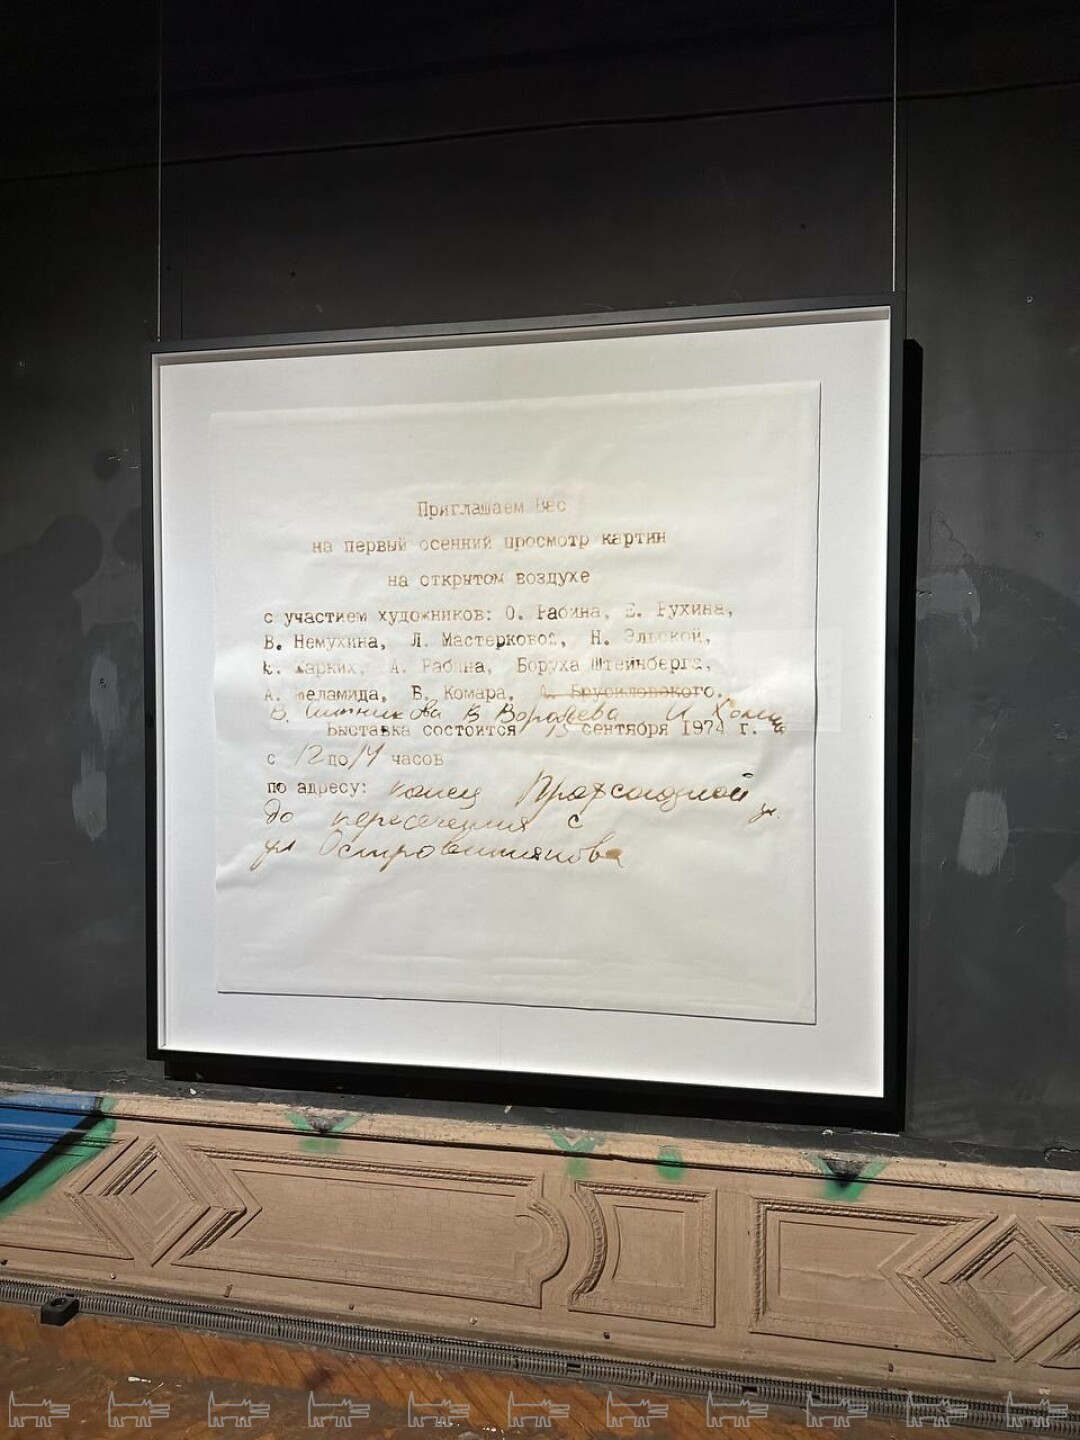 Приглашаем Вас
на первый осенний просмотр картин
на открытом воздухе
с участием художников: О. Рабина, Е. Рухина,
В. Немухина, Л. Мастерковой, Н. Эльской,
Жарких, А. Рабина, Боруха Штейнберга,
А. Меламида, В. Комара, Брусиловского.
В. Ситникова В Воробьева И Холин
Выставка состоится 15 сентября 1974 г.
с 12 по 14 часов
по адресу: конец Профсоюзной ул.
до пересечения с
ул Островитянова